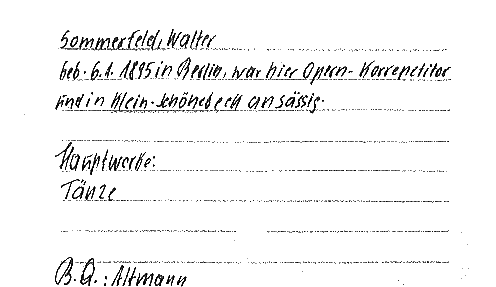 Sommerfeld, Walter
geb. 6.1. 1895 in Berlin, war hier Opern-Korrepetitor
und in Klein-Schönebeck ansässig.
Hauptwerke:
Tänze
B.A.: Altmann